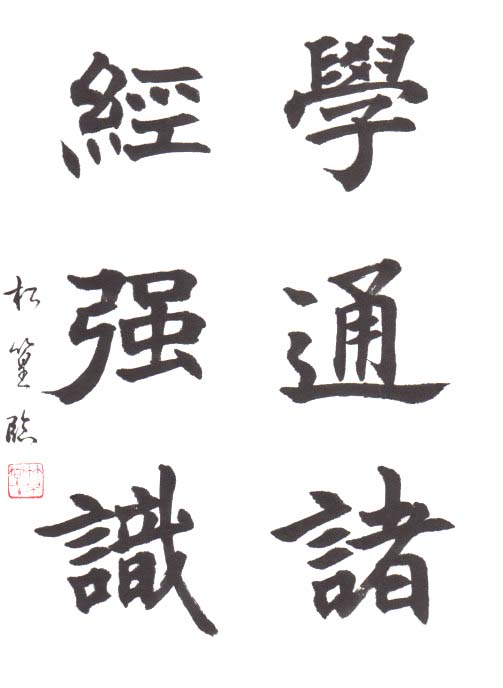 學通諸
經强識
松篁臨